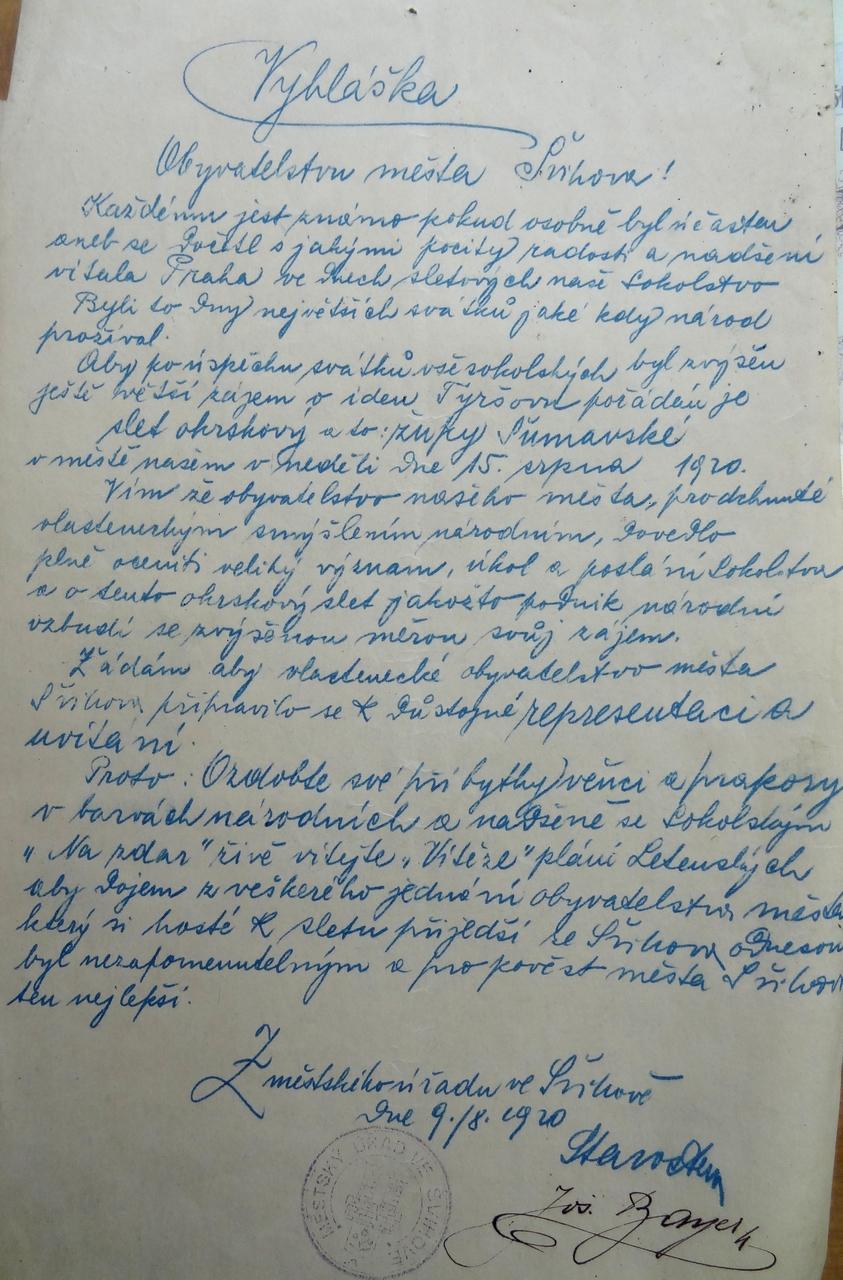 Vyhláška
Obyvatelstvu města Švihova!
Každému jest známo pokud osobně byl účasten
aneb se dočetl s jakými pocity radosti a nadšení
vítala Praha ve dnech sletových naše Sokolstvo
Byli to dny největších svátků jaké kdy národ
prožíval.
Aby po úspěchu svátků všesokolských byl zvýšen
ještě větší zájem o ideu Tyršovu pořádán je
slet okrskový a to: župy Šumavské
v městě našem v neděli dne 15. srpna 1920.
Vím že obyvatelstvo našeho města, prodchnuté
vlasteneckým smýšlením národním, dovedlo
plně oceniti veliký význam, úkol a poslání Sokolstva
a o tento okrskový slet jakožto podnik národní
vzbudí se zvýšenou měrou svůj zájem.
Žádám aby vlastenecké obyvatelstvo města
Švihova připravilo se k důstojné representaci a
uvítání.
Proto: Ozdobte své příbytky věnci a prapory
v barvách národních a nadšeně se sokolským
„Na zdar" živě vítejte „Vítěze" plání Letenských
aby dojem z veškerého jednání obyvatelstva města
který si hosté k sletu přijedší ze Švihova odnesou
byl nezapomenutelným a pro pověst města Švihova
ten nejlepší.
Z městského úřadu ve Švihově
dne 9./8. 1920
Starosta
Jos. Bayer
MĚSTSKÝ ÚŘAD VE ŠVIHOVĚ